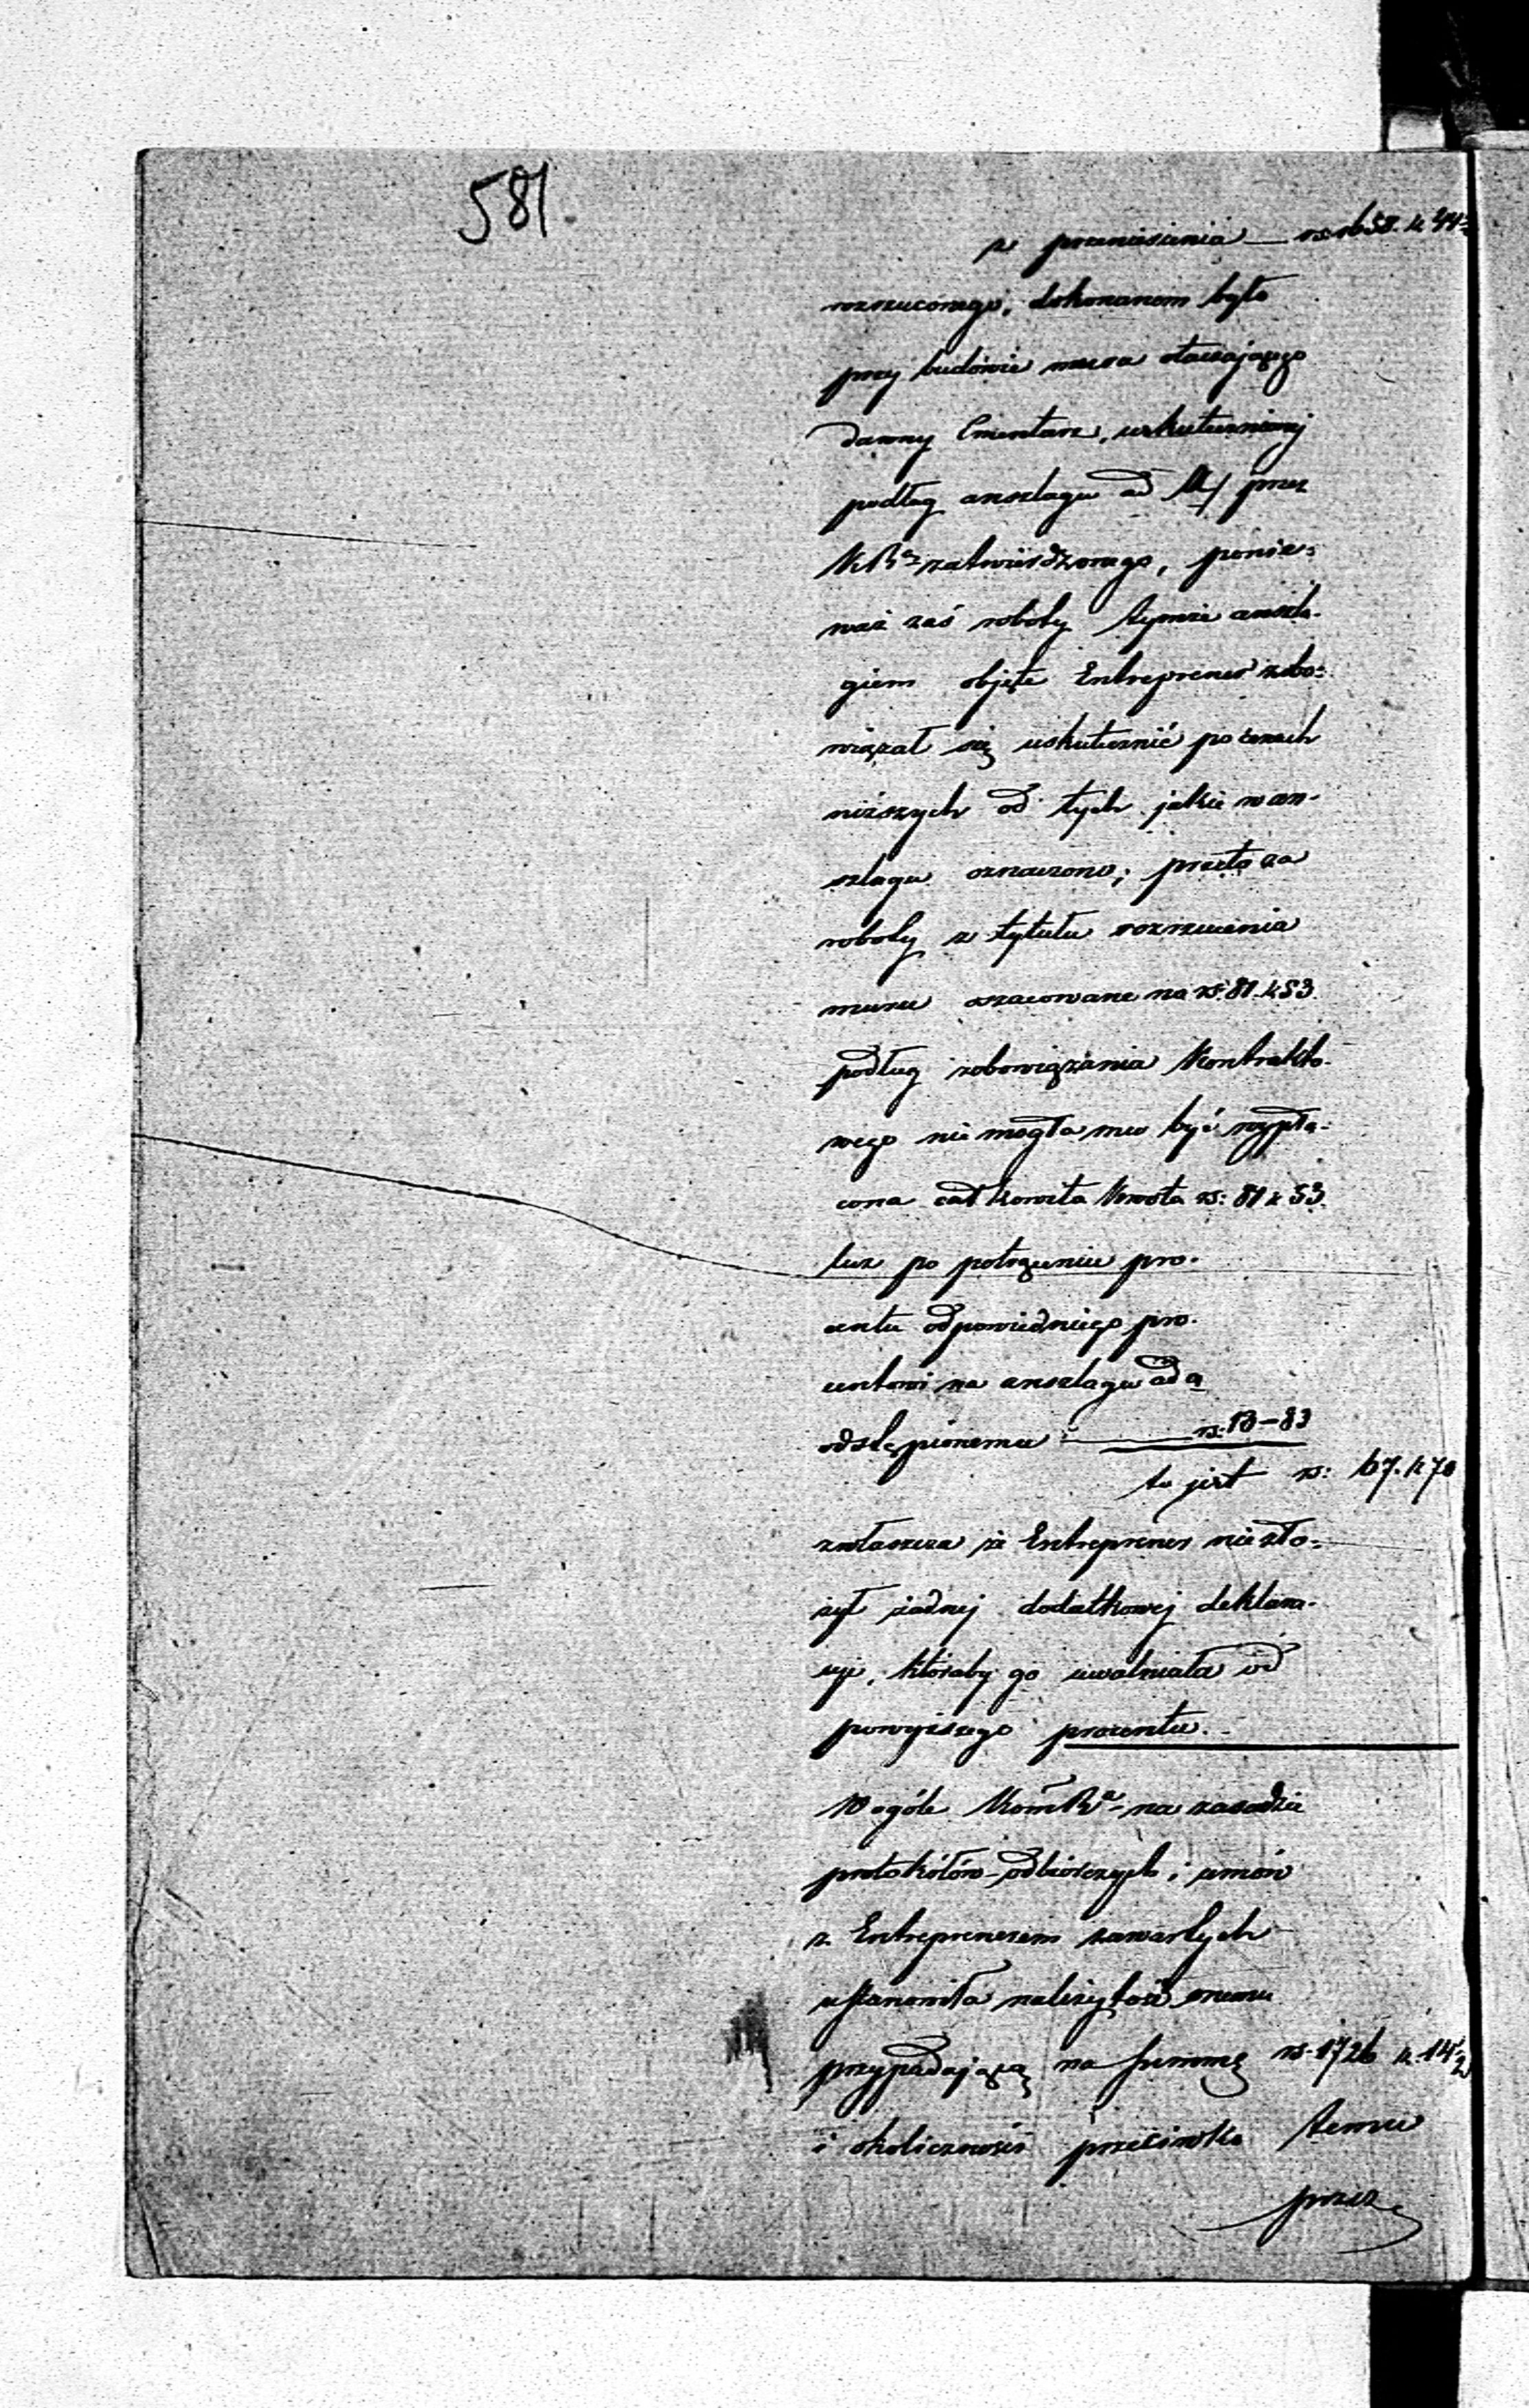 581.
z przeniesienia — rs: 1658. k 44
rozrzuconego, dokonanem było
przy budowie muru otaczającego
dawny Cmentarz, uskutecznionej
podług anszlagu ad przez
KRz zatwierdzonego, ponie-
waż zaś roboty tymże anszla-
giem objęte Entreprener zobo-
wiązał się uskutecznić po cenach
niższych od tych jakie w an-
szlagu oznaczono; przeto za
roboty z tytułu rozrzucenia
muru oszacowane na rs: 81. k 53.
podług zobowiązania Kontrakto-
wego nie mogła mu być wypła-
cona całkowita Kwota rs: 81 k 53.
lecz po potrąceniu pro-
centu odpowiedniego pro-
centowi na anszlagu ad a
odstąpionemu — rs: 13 – 83
to jest rs: 67. k 70
zwłaszcza że Entreprener nie zło-
żył żadnej dodatkowej deklara-
cyi, któraby go uwalniała od
powyższego procentu.
W ogóle Kom Rz na zasadzie
protokółów odbiorczych i umów
z Entreprenerem zawartych
ustanowiła należytość onemu
przypadającą na Summę rs. 1726 k. 14½
i okoliczności przeciwko temu
przez